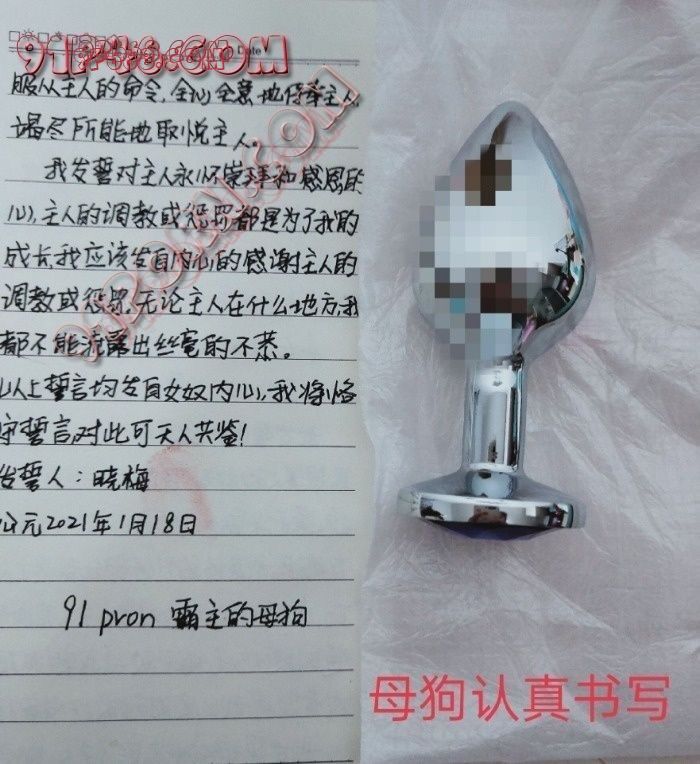 91P46.COM
Date
服从主人的命令,全心全意地侍奉主人,
竭尽所能地取悦主人。
我发誓对主人永怀崇拜和感恩的
心,主人的调教或惩罚都是为了我的
成长,我应该发自内心的感谢主人的
调教或惩罚,无论主人在什么地方,我
都不能流露出丝毫的不恭。
以上誓言均发自女奴内心,我将恪
守誓言对此可天人共鉴!
发誓人:晓梅
公元2021年1月18日
91 pron 霸主的母狗
母狗认真书写